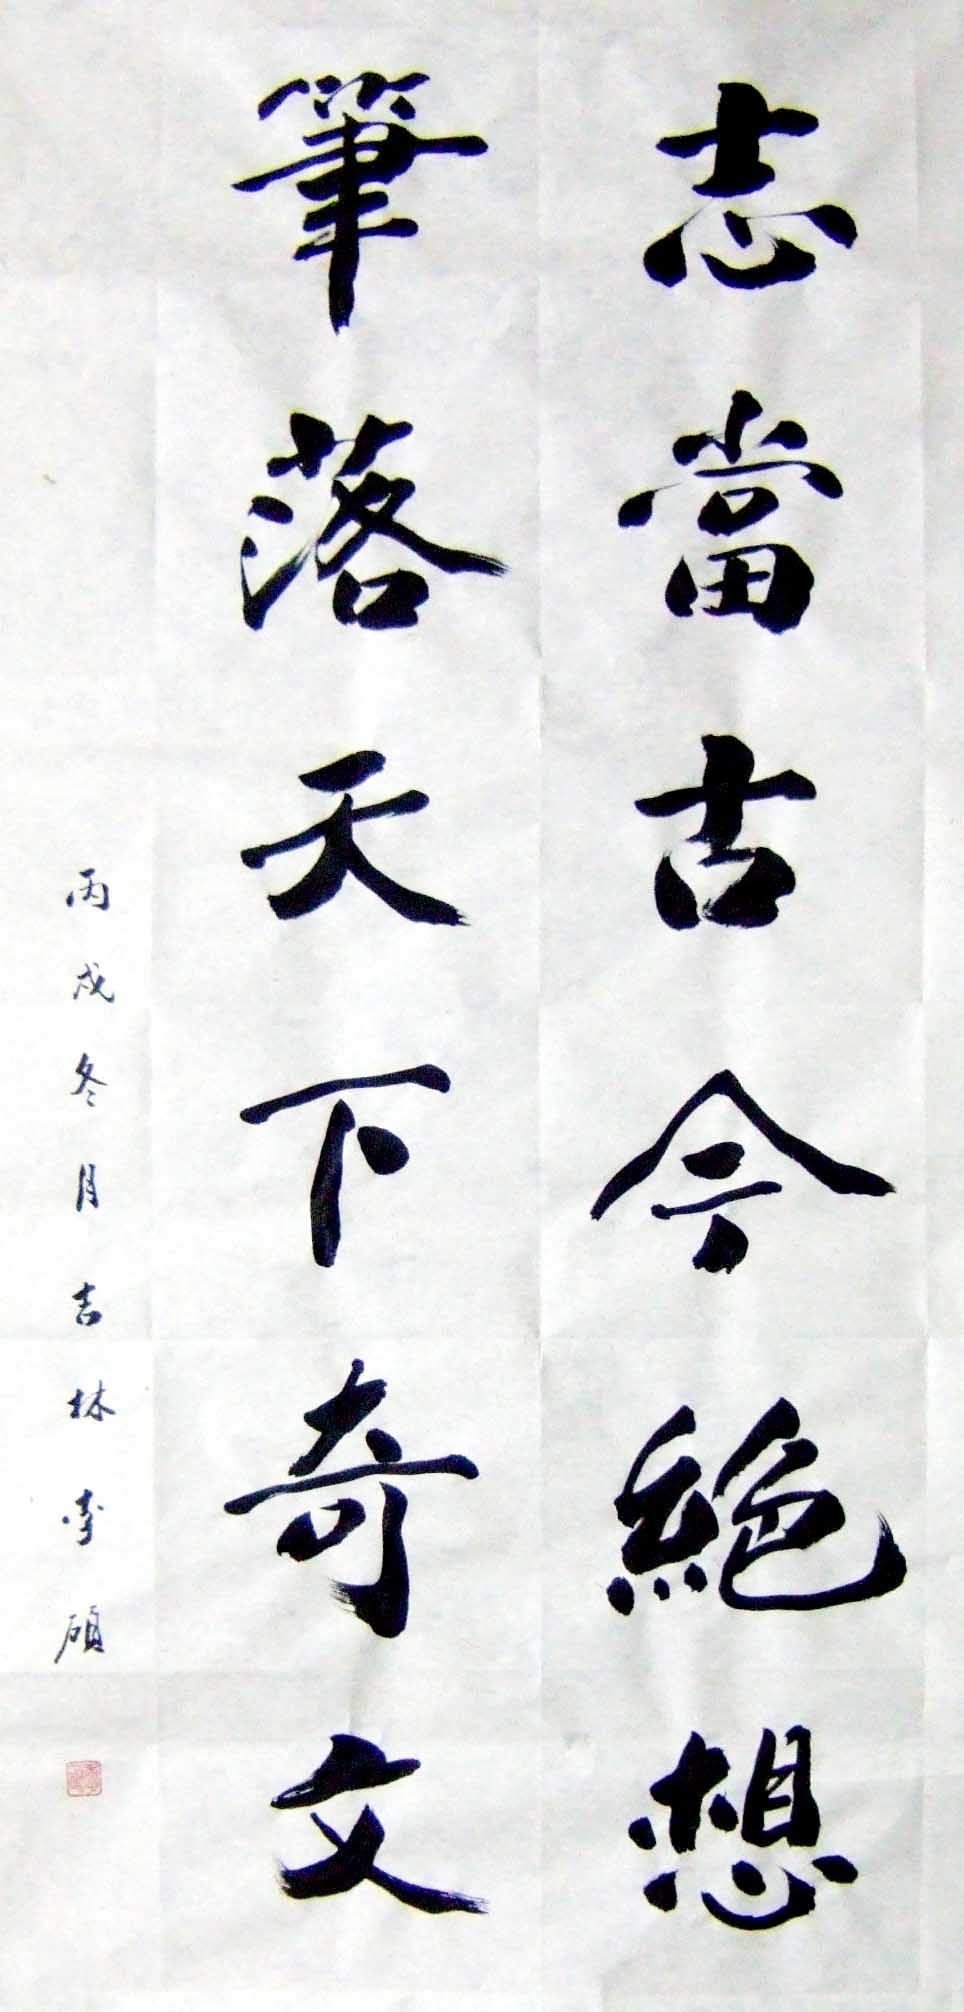 志當古今絕想
筆落天下奇文
丙戌冬月吉林李碩